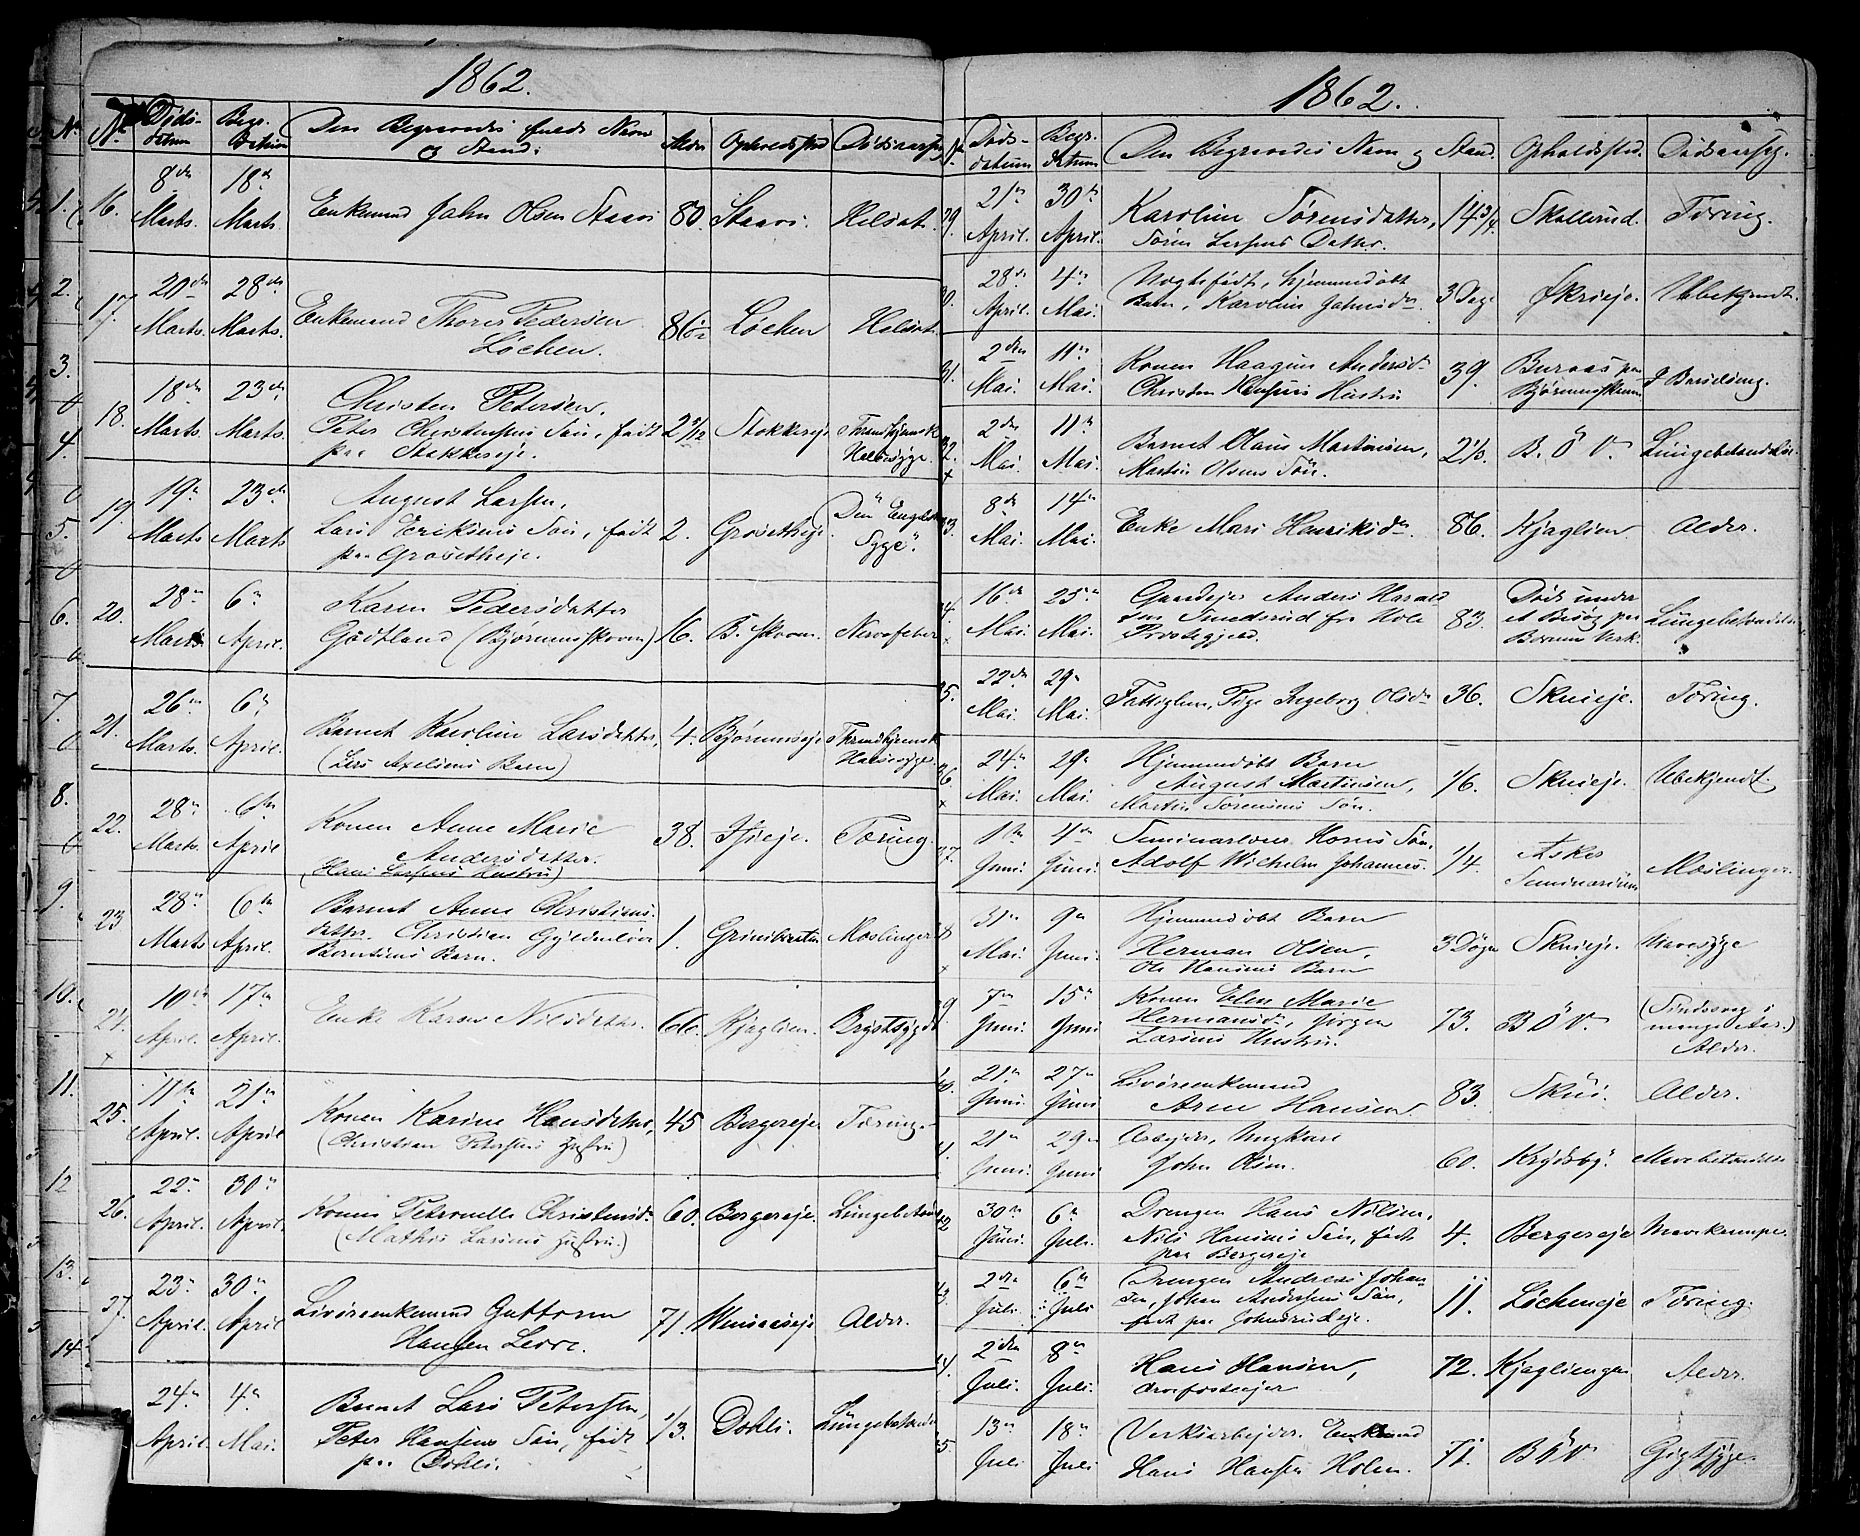 1862.
No Døds-datum Begr. Datum Den Begravedes fulde Navn og Stand. Alder Opholdssted Dødsaarsag
16. 8de Marts. 18de Marts. Enkemand John Olsen Staavi 80. Staavi Helsot.
17. 20de Marts. 28de Marts. Enkemand Thores Pedersen
Løchen. 86 1/2 Løchen Helsot.
18. 18de Marts. 23de Marts. Christen Petersen,
Peter Christensens Søn, født
paa Stokkeseje. 2 9/12 Stokkeseje Throndhjemsk
Halssyge.
19. 19n Marts 23de Marts August Larsen,
Lars Eriksens Søn, født
paa Grosetheje. 2. Grosetheje. Den Engelske
Syge".
20. 28n Marts. 6n April. Karen Pedersdatter
Godtland (Bjørumsskoven) 16. B. skoven. Nervefeber
21. 26n Marts. 6n April. Barnet Karoline Larsdatter,
(Lars Axelsens Barn) 4. Bjørumseje Throndhjemsk
Halssyge.
22. 28n Marts. 6te April Konen Anne Marie
Andersdatter.
(Hans Larsens Hustru) 38. Isieje. Tæring.
23 28n Marts 6te April. Barnet Anne Christians-
datter. Christian Gyldenløve
Berntsens Barn. 1. Mæslinger.
24. 10n April. 17n April. Enke Karen Nilsdatter. 66. Kjaglien. Brystsygdom
25. 11te April. 21n April Konen Karine Hansdatter,
(Christian Petersens Hustru) 45 Bergereje. Tæring.
26. 22n April. 30n April. Konen Petronelle Christensd.
(Mathis Larsens Hustru.) 60. Bergereje. Lungebetænd.
27. 23n April. 30n April Livøreenkemand Guttorm
Hansen Lerre. 71. Wensaaseje Alder.
24n April. 4n Mai. Barnet Lars Petersen,
Peter Hansens Søn, født
paa Dohli. 1/3. Dohli. Lungebetænd.
1862.
No Døds-datum Begr. datum Den Begravedes Navn og Stand. Opholdssted. Dødsaarsag.
29. 21n April. 30te April. Karoline Sørensdatter,
Søren Larsens Datter. 14 3/4. Skollerud. Tæring.
30. 28de April. 4n Mai. Uægtefødt, hjemmedøbt
Barn, Karoline Johnsd. 3 Dage Økrieje. Ubekjendt.
31. 2den Mai. 11n Mai. Konen Haagine Andersd.
Christen Hansens Hustru 39. Buraas paa
Bjørumsskoven I Barselseng.
32. 2den Mai. 11n Mai. Barnet Olaus Martinsen,
Martin Olsens Søn. B. O V. Lungebetændelse.
33. 8de Mai. 14n Mai. Enke Mari Henriksd. 86. Kjaglien Alder.
34. 16de Mai. 25n Mai. Gaardejer Anders Harald
sen Smedsrud fra Hole
Præstegjeld. 83. Død under
et Besøg paa
Bærums Verk. Lungebetændelse
35. 22de Mai. 29n Mai. Fattiglem, Pige Ingeborg Olsd. 36. Skuieje. Tæring.
36 24n Mai. 29n Mai. Hjemmedøbt Barn
August Martinsen,
Martin Sørensens Søn. 1/6. Skuieje. Ubekjendt.
37. 1te Juni. 4de Juni. Seminarlærer Horns Søn
Adolf Wilhelm Johannes. 1/4. Asker
Seminarium Mæslinger.
38 31n Mai. 9n Juni. Hjemmedøbt Barn
Herman Olsen,
Ole Hansens Barn 3 Døgn Skuieje. Mavesyge
39. 7n Juni. 15n Juni Konen Elen Marie
Hermansd., Jørgen
Larsens Hustru. 73. B O V. (Sindssvag i
mange Aar.)
Alder.
40. 21n Juni 27n Juni Livøreenkemand
Arne Hansen. 83. Skui. Alder.
41. 21n Juni 29n Juni Arbejder, Ungkarl
John Olsen. 60. Krydsby. Mavebetændelse
42 30n Juni. 6n Juli. Drengen Hans Nilsen,
Nils Hansens Søn, født
paa Bergereje 4. Bergereje Mavekrampe.
43. 2den Juli. 6n Juli Drengen Andreas Johan
sen, Johan Andersens Søn,
født paa Johnsrudeje. 11. Løcheneje Tæring.
44. 2den Juli. 8n Juli. Hans Hansen,
72. Kjagliengen Alder.
45. 13n Juli 18n Juli. Verksarbejder. Enkemand
Hans Hansen Holen. 71. B O V. Gigtsyge.